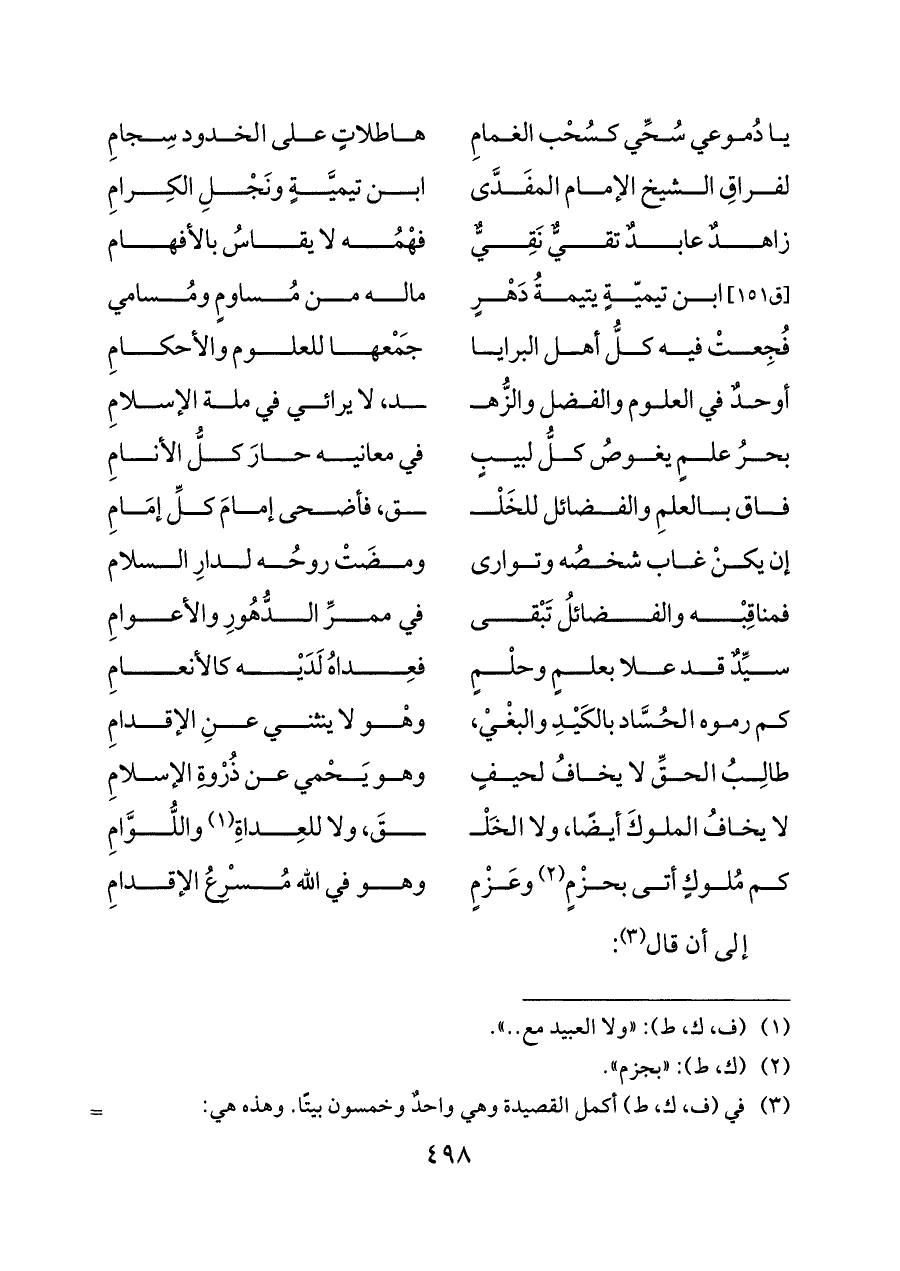 يا دُموعي سُحِّي كسُحْب الغمامِ هاطلاتٍ على الخدود سِجامِ
لفراقِ الشيخ الإمام المفَدَّى ابن تيميَّةٍ ونَجْلِ الكِرامِ
زاهدٌ عابدٌ تقيٌّ نَقِيٌّ فهْمُه لا يقاسُ بالأفهامِ
[ق١٥١] ابن تيميّةٍ يتيمةُ دَهْرٍ ماله من مُساومٍ ومُسامي
فُجِعتْ فيه كلُّ أهل البرايا جمَعْها للعلومِ والأحكامِ
أوحدٌ في العلومِ والفضل والزُّهـ ـد، لا يرائي في ملة الإسلامِ
بحرُ علمٍ يغوصُ كلُّ لبيبٍ في معانيه حارَ كلُّ الأنامِ
فاق بالعلمِ والفضائل للخَلْـ ـق، فأضحى إمامَ كلِّ إمَامِ
إن يكنْ غاب شخصُه وتوارى ومضَتْ روحُه لدارِ السلام
فمناقِبْه والفضائلُ تَبْقى في ممرِّ الدُّهُورِ والأعوامِ
سيِّدٌ قد علا بعلمٍ وحلْمٍ فعِداهُ لَدَيْه كالأنعامِ
كم رموه الحُسَّاد بالكَيْدِ والبغْيْ، وهْو لا ينثني عنِ الإقدامِ
طالِبُ الحقِّ لا يخافُ لحيفٍ وهو يَحْمي عن ذُرْوةِ الإسلامِ
لا يخافُ الملوكَ أيضًا، ولا الخَلْـ ـقَ، ولا للعِداةِ(١) واللُّوَّامِ
كم مُلوكٍ أتى بحزْمٍ(٢) وعَزْمٍ وهو في الله مُسْرِعُ الإقدامِ
إلى أن قال(٣):
(١) (ف، ك، ط): «ولا العبيد مع..».
(٢) (ك، ط): «بجزم».
(٣) في (ف، ك، ط) أكمل القصيدة وهي واحدٌ وخمسون بيتًا. وهذه هي: =
٤٩٨